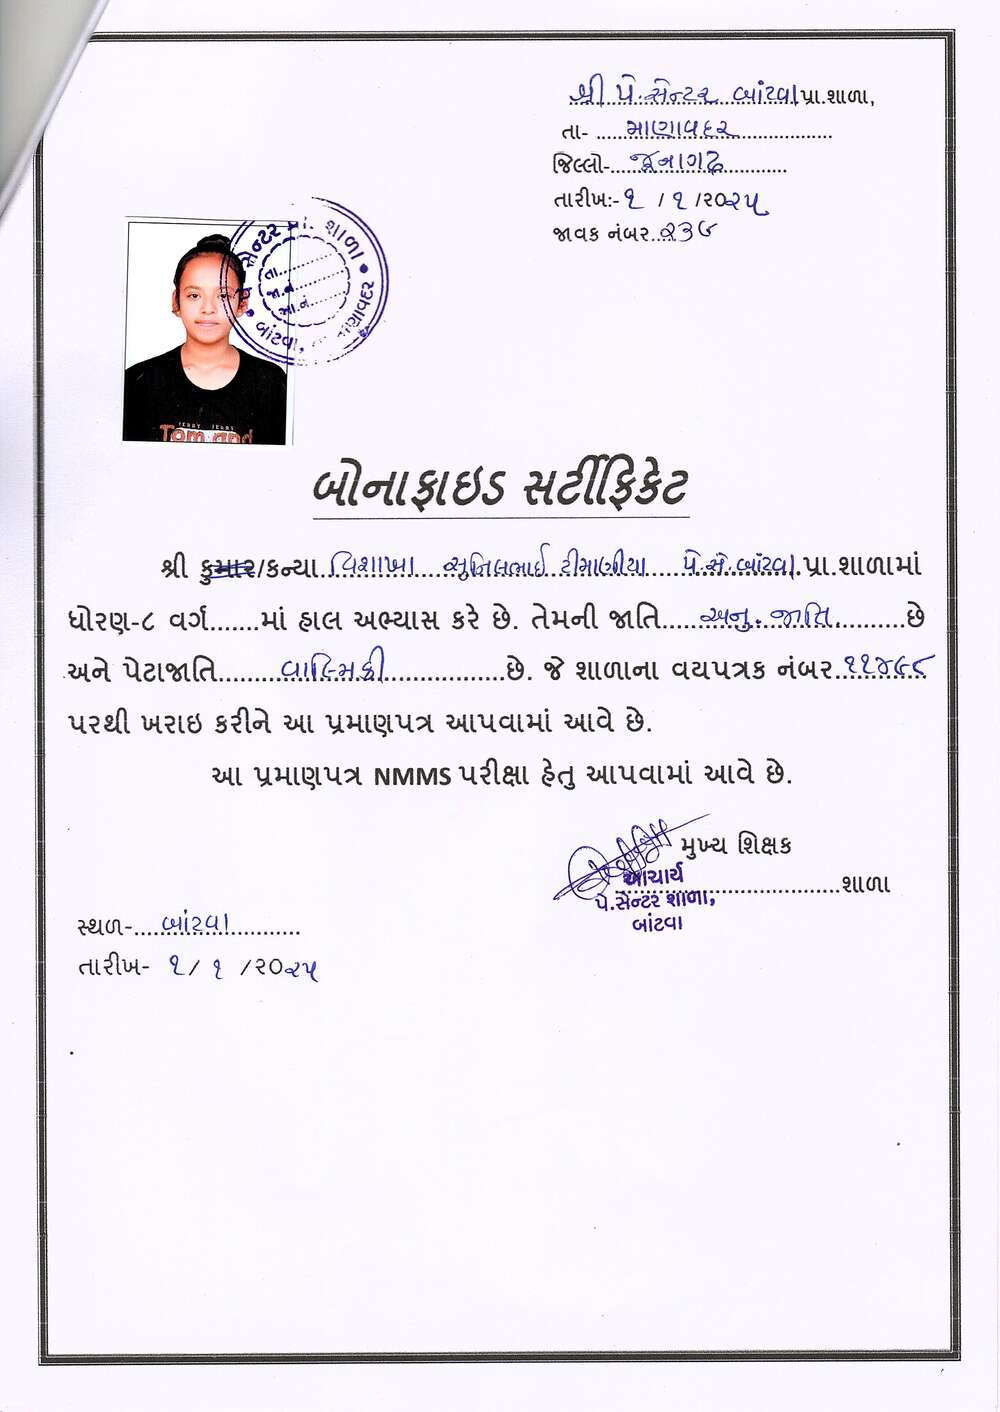 શ્રી પે.સેન્ટર બાંટવા પ્રા.શાળા,
તા- માણાવદર
જિલ્લો- જૂનાગઢ
તારીખ:- ૧ / ૧ /૨૦૨૫
જાવક નંબર..૨૩૭
પે સેન્ટર પ્રા. શાળા
તા..........
જા.નં.........
આ.નં.........
બાંટવા, તા માણાવદર
JERRY JERRY
Tom and
બોનાફાઇડ સર્ટીફિકેટ
શ્રી કુમાર/કન્યા..વિશાખા સુનિલભાઈ ટીમાણીયા પે.સે.બાંટવા.પ્રા.શાળામાં
ધોરણ-૮ વર્ગ.......માં હાલ અભ્યાસ કરે છે. તેમની જાતિ.....અનુ. જાતિ..........છે
અને પેટાજાતિ.........વાલ્મિકી.................છે. જે શાળાના વયપત્રક નંબર.૧૧૪૯૮
પરથી ખરાઇ કરીને આ પ્રમાણપત્ર આપવામાં આવે છે.
આ પ્રમાણપત્ર NMMS પરીક્ષા હેતુ આપવામાં આવે છે.
મુખ્ય શિક્ષક
આચાર્ય
..............................શાળા
પે.સેન્ટર શાળા,
બાંટવા
સ્થળ-....બાંટવા............
તારીખ- ૧ / ૧ /૨૦૨૫